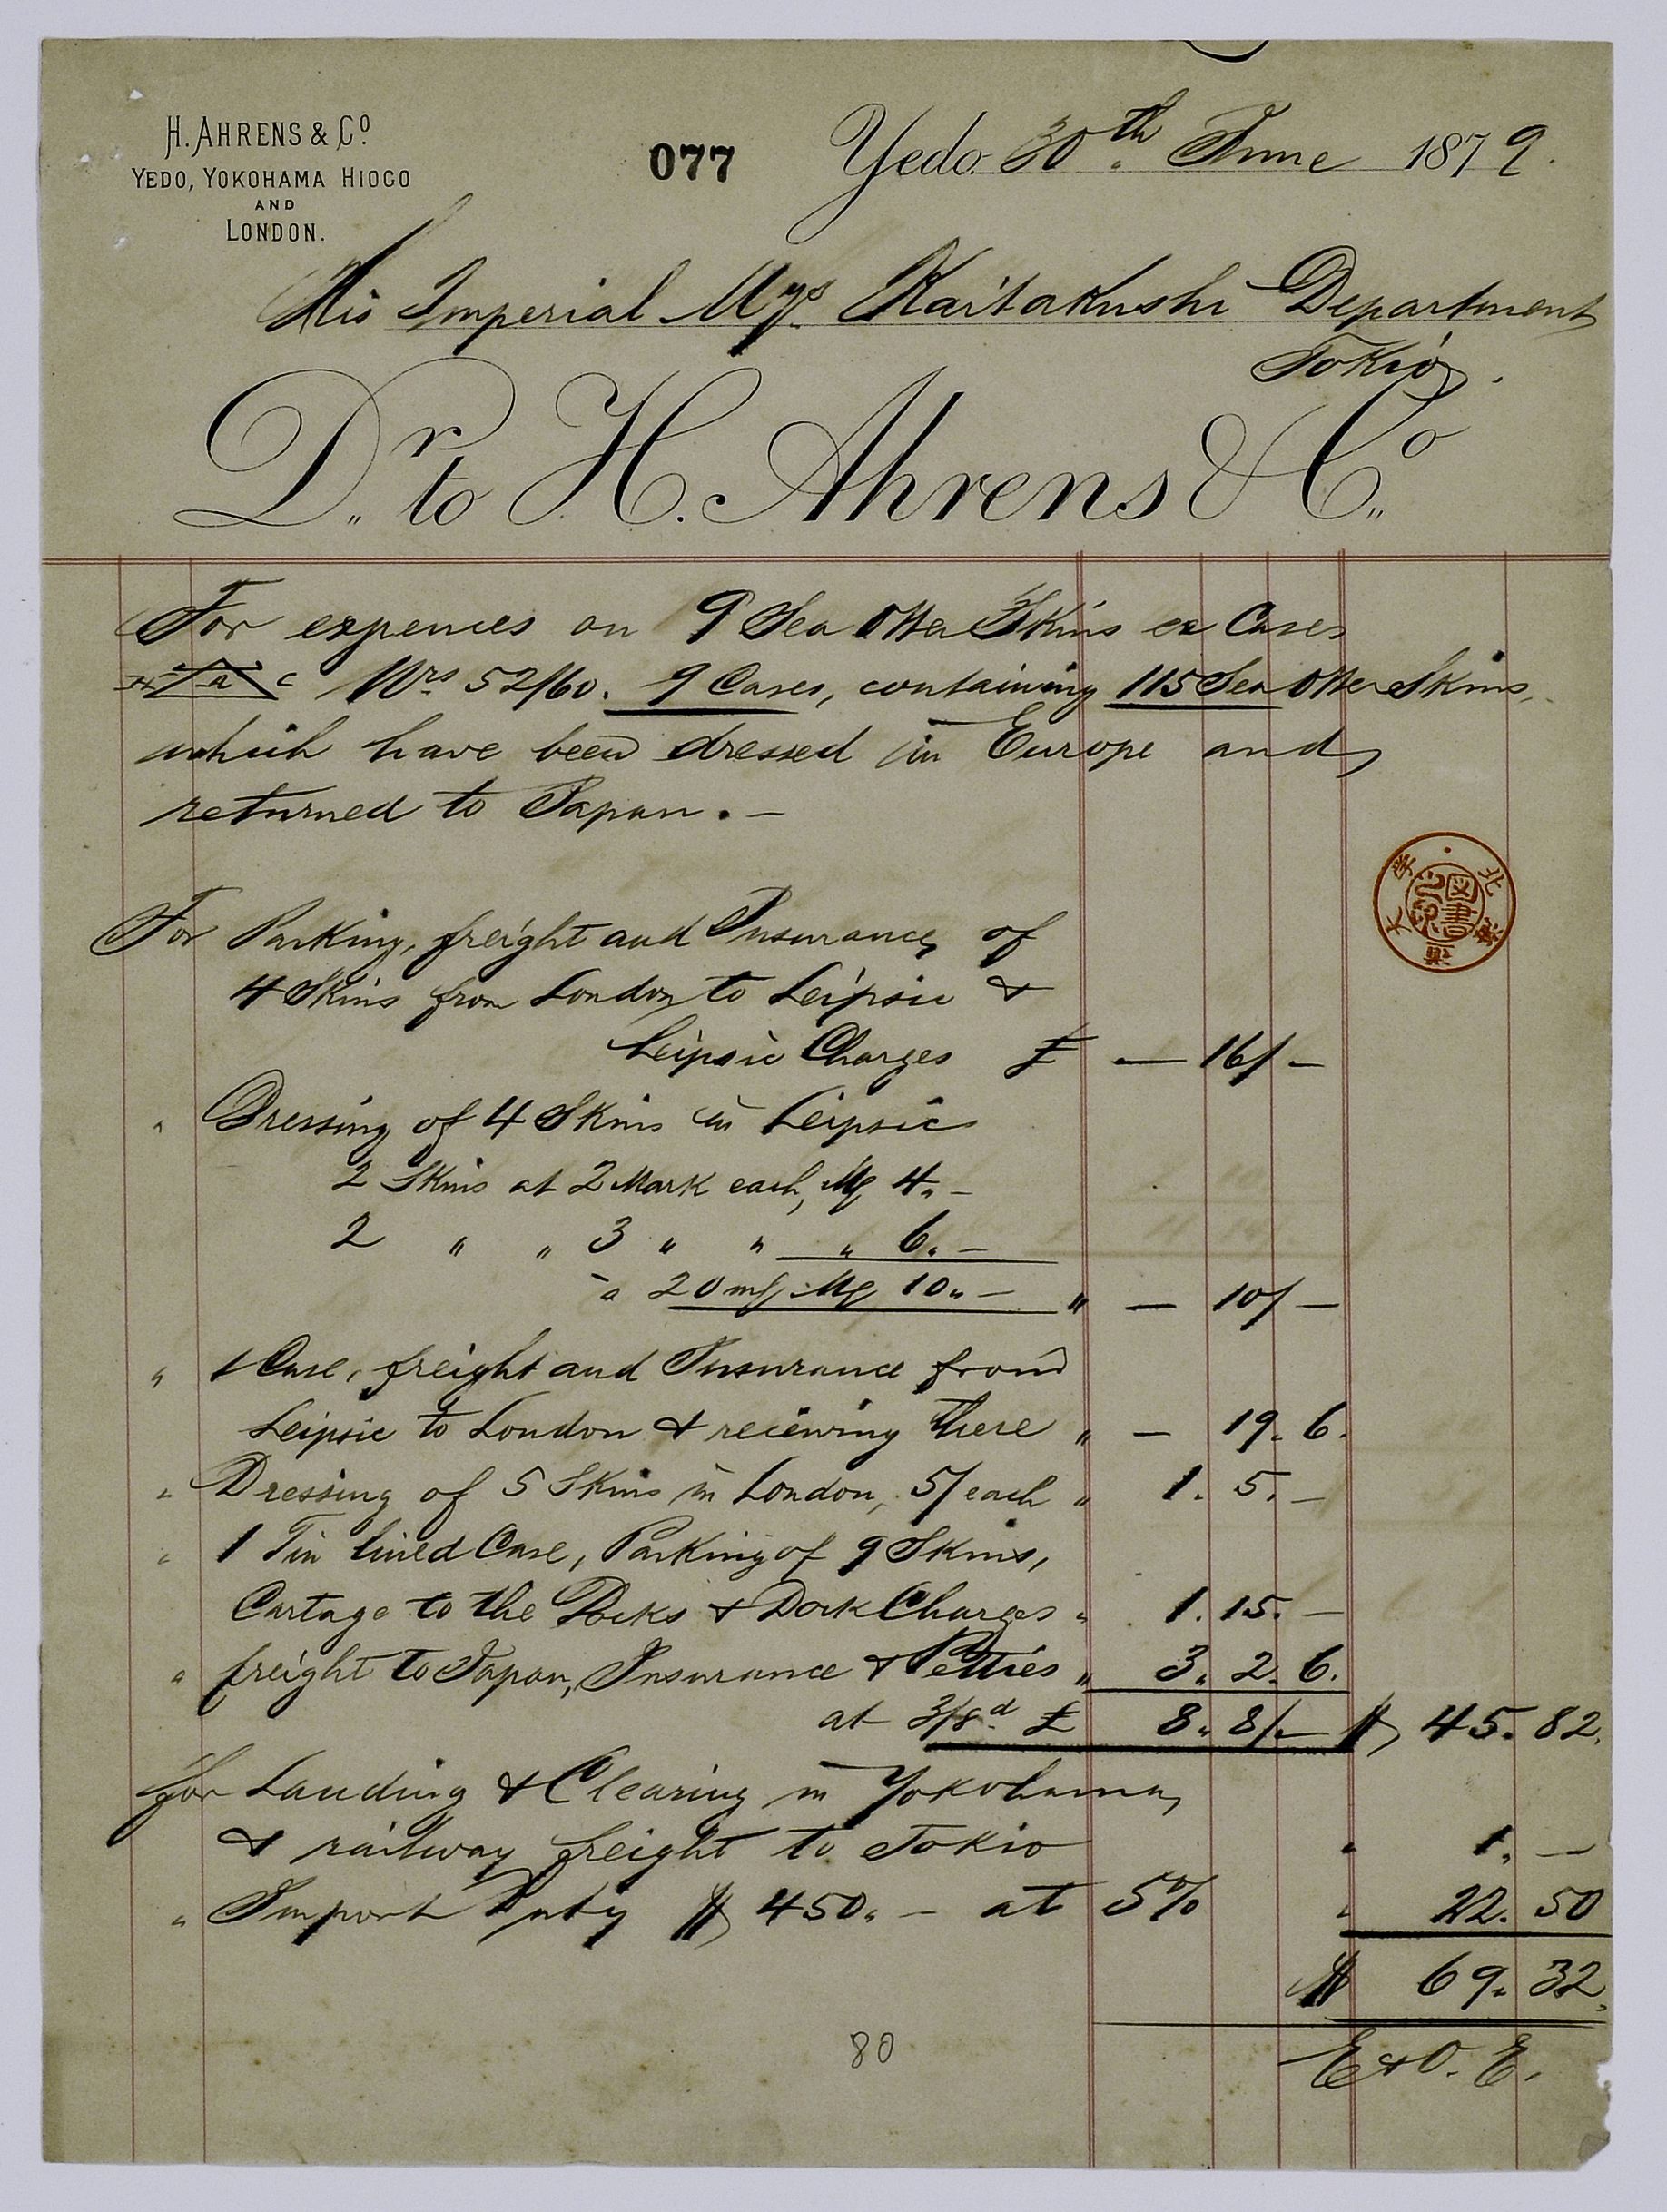 H. AHRENS & Cº
YEDO, YOKOHAMA HIOGO
AND
LONDON.
077
Yedo 30th June 1879.
His Imperial Mys Kaitakushi Department
Tokio.
Dr. to H. Ahrens & Co.
For expences on 9 Sea Otter Skins ex Cases
Nrs 52/60. 9 Cases, containing 115 Sea Otter Skins,
which have been dressed in Europe and
returned to Japan. —
For Packing, freight and Insurance of
4 Skins from London to Leipsic &
Leipsic Charges £ — 16/ —
" Dressing of 4 Skins in Leipsic
2 Skins at 2 Mark each, Mk 4. —
2 " " 3 " " " 6. —
a 20 mk Mk 10. — " — 10/ —
" 1 Case, freight and Insurance from
Leipsic to London & receiving there " — 19. 6.
" Dressing of 5 Skins in London, 5/ each " 1. 5. —
" 1 Tin lined Case, Packing of 9 Skins,
Cartage to the Docks & Dock Charges " 1. 15. —
" freight to Japan, Insurance & Petties " 3. 2. 6.
at 3/8d £ 8. 8/ — $ 45. 82.
for Landing & Clearing in Yokohama
& railway freight to Tokio " 1. —
" Import Duty $ 450. — at 5% " 22. 50
$ 69. 32.
E & O. E.
80